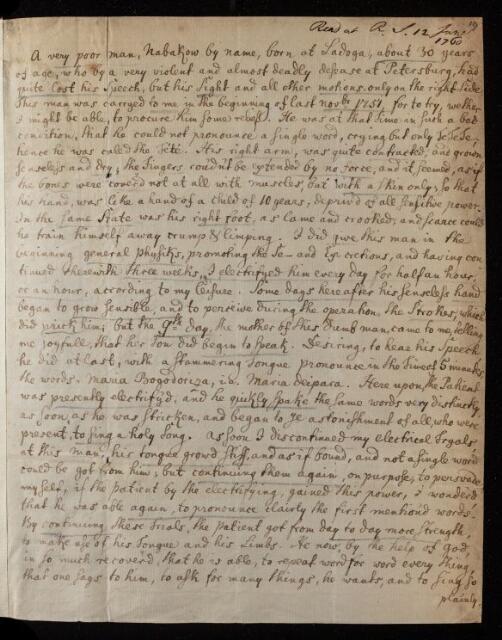 Read at R. S. 12 June
1760
A very poor man, Nabakow by name, born at Ladoga, about 30 years
of age, who by a very violent and almost deadly disease at Petersburg, had
quite lost his speech, but his sight and all other motions only on the right side.
This man was carried to me in the beginning of last novbr 1751, for to try, wether
I might be able, to procure him some relief. He was at that time in such a bad
condition, that he could not pronounce a single word, crying but only
hence he was called the His right arm, was quite contracted, and grown
senseless and dry, the fingers couldn't be extended by no force, and it seemed, as if
the bones were cover'd not at all with muscles, but with a skin only, so that
his hand, was like a hand of a child of 10 years, depriv'd of all sensitive power.
In the same state was his right foot, as lame and crooked, and scarce could
he train himself away crump & limping. I did give this man in the
beginning general physiks, promoting the Se- and Excretions, and having con-
tinued therewith three weeks, I electrifyed him every day for half an hour,
or an hour, according to my leisure. Some days hereafter his senseless hand
began to grow sensible, and to perceive during the operation, the strokes, which
did prick him; but the 9th day, the mother of this dumb man came to me, telling
me joyfull, that her son did begin to speak. Desiring, to hear his speech
he did at last, with a stammering tongue pronounce in the time of 5 minutes
the words. Maria Bogoroditza, i.e. Maria deipara. Here upon, the Patient
was presently electrify'd, and he quikly spake the same words very distinctly,
as soon, as he was stricken, and began to ye astonishment of all, who were
present, to sing a holy song. As soon I discontinued my electrical
at this man, his tongue grow'd stiff, and as if bound, and not a single word
could be got from him; but continuing them again, on purpose, to perswade
myself, if the patient by the electrifying, gained this power, I wonder'd
that he was able again, to pronounce clairly the first mention'd words.
By continuing these trials, the patient got from day to day more strength,
to make use of his tongue and his limbs. He now, by the help of god,
in so much recover'd, that he is able, to repeat word for word every thing,
that one says to him, to ask for many things, he wants, and to sing so
plainly,